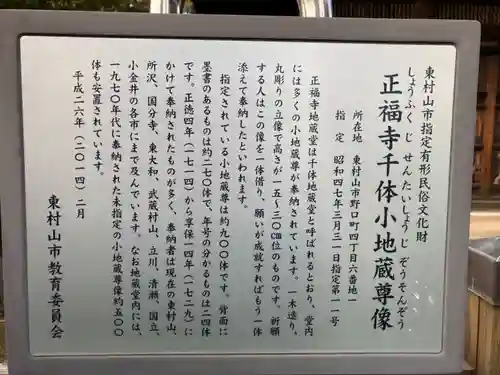 東村山市指定有形民俗文化財
しょうふくじ せんたいしょうじ ぞうそんぞう
正福寺千体小地蔵尊像
所在地 東村山市野口町四丁目六番地一
指定 昭和四七年三月三一日指定第一一号
正福寺地蔵堂は千体地蔵堂と呼ばれるとおり、堂内
には多くの小地蔵尊が奉納されています。一木造り、
丸彫りの立像で高さが一五～三〇㎝位のものです。祈願
する人はこの像を一体借り、願いが成就すればもう一体
添えて奉納したといわれます。
指定されている小地蔵尊は約九〇〇体です。背面に
墨書のあるものは約二七〇体で、年号の分かるものは二四体
です。正徳四年（一七一四）から享保一四年（一七二九）に
かけて奉納されたものが多く、奉納者は現在の東村山、
所沢、国分寺、東大和、武蔵村山、立川、清瀬、国立、
小金井の各市にまで及んでいます。なお地蔵堂内には、
一九七〇年代に奉納された未指定の小地蔵尊像約五〇〇
体も安置されています。
平成二六年（二〇一四）二月
東村山市教育委員会